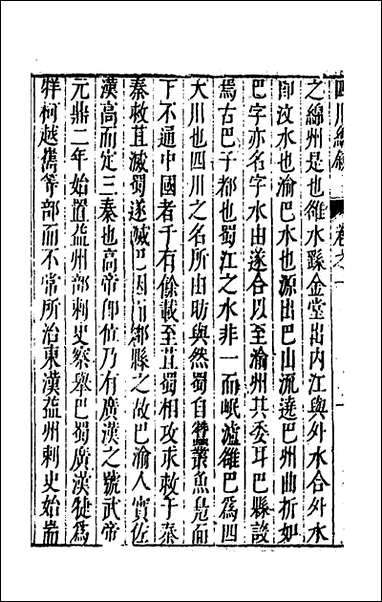 四川總錄 卷之一
之綿州是也雒水繇金堂出内江與外水合外水
即汶水也渝巴水也源出巴山流遶巴州曲折如
巴字亦名字水由遂合以至渝州其委耳巴縣設
焉古巴子都也蜀江之水非一而岷瀘雒巴爲四
大川也四川之名所由昉與然蜀自蠶叢魚鳧而
下不通中國者千有餘載至苴蜀相攻求救于秦
秦救苴滅蜀遂滅巴因而郡縣之故巴渝人實佐
漢高而定三秦也高帝即位乃有廣漢之號武帝
元鼎二年始置益州部刺史察舉巴蜀廣漢犍爲
牂柯越雋等部而不常所治東漢益州刺史始耑